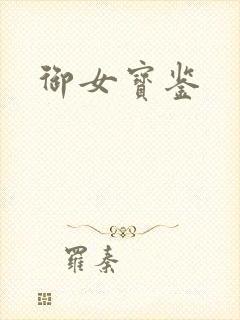 御女寶鉴
羅秦